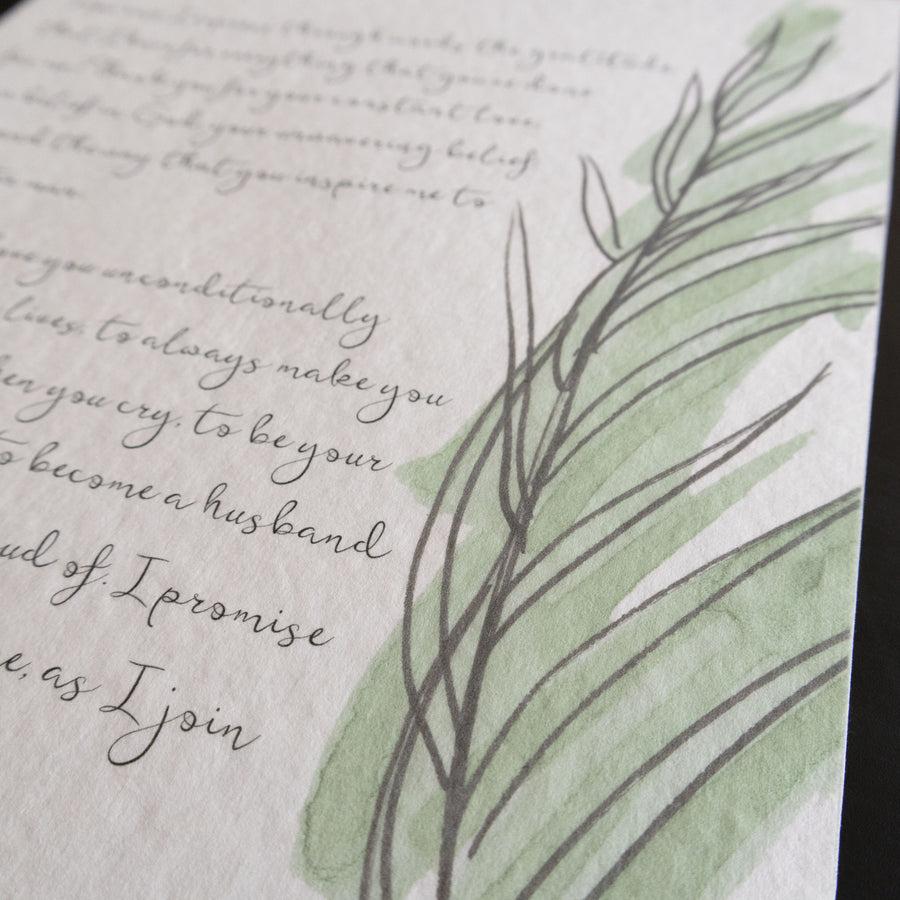 through words, the gratitude
for everything that you've done
Thank you for your constant love
belief in God, your unwavering belief
and the way that you inspire me to
love you unconditionally
lives, to always make you
you cry, to be your
to become a husband
of. I promise
as I join